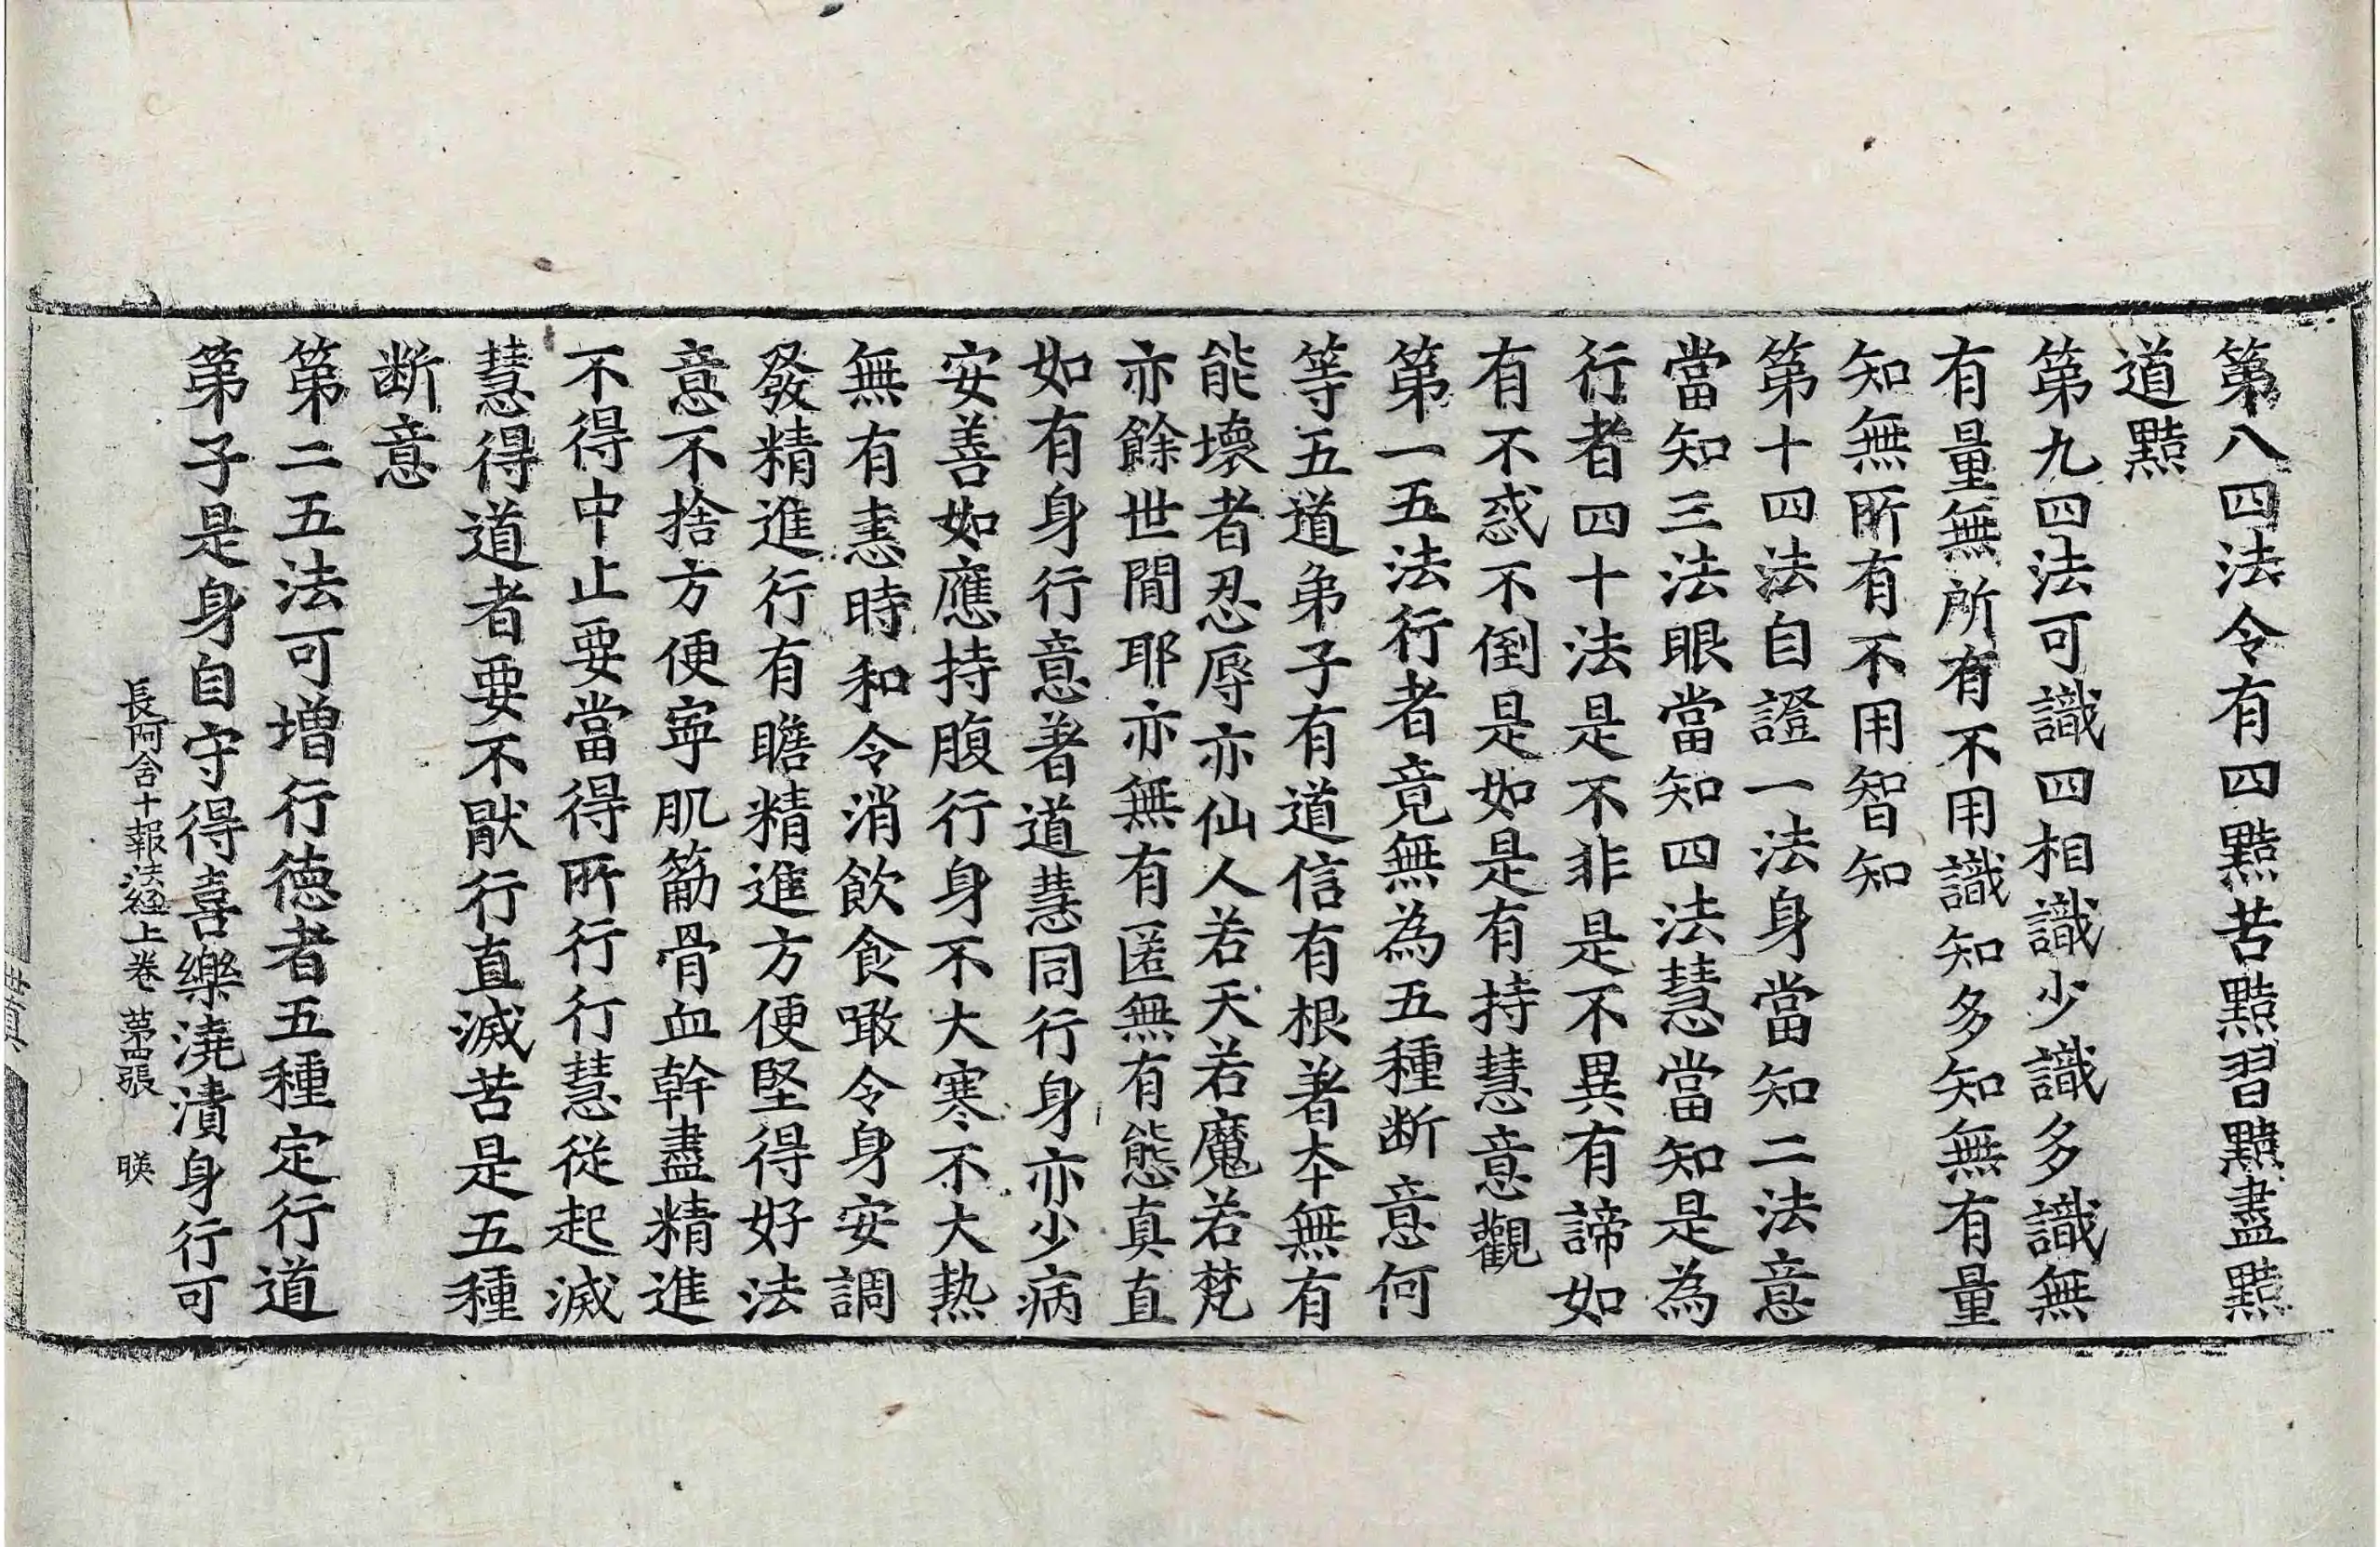 第八四法令有四黠苦黠習黠盡黠
道黠
第九四法可識四相識少識多識無
有量無所有不用識知多知無有量
知無所有不用智知
第十四法自證一法身當知二法意
當知三法眼當知四法慧當知是為
行者四十法是不非是不異有諦如
有不惑不倒是如是有持慧意觀
第一五法行者竟無為五種断意何
等五道弟子有道信有根著夲無有
能壞者忍辱亦仙人若天若魔若梵
亦餘世間耶亦無有匿無有態真直
如有身行意著道慧同行身亦少病
安善如應持腹行身不大寒不大热
無有恚時和令消飲食噉令身安調
發精進行有瞻精進方便堅得好法
意不捨方便寧肌篛骨血幹盡精進
不得中止要當得所行行慧從起滅
慧得道者要不猒行直滅苦是五種
断意
第二五法可增行德者五種定行道
第子是身自守得喜樂澆漬身行可
長阿含十報法經上卷 第四張 暎